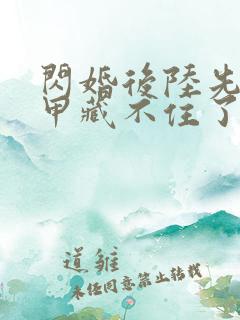 閃婚後陸先
甲藏不住了
道雏
未经同意禁止转载